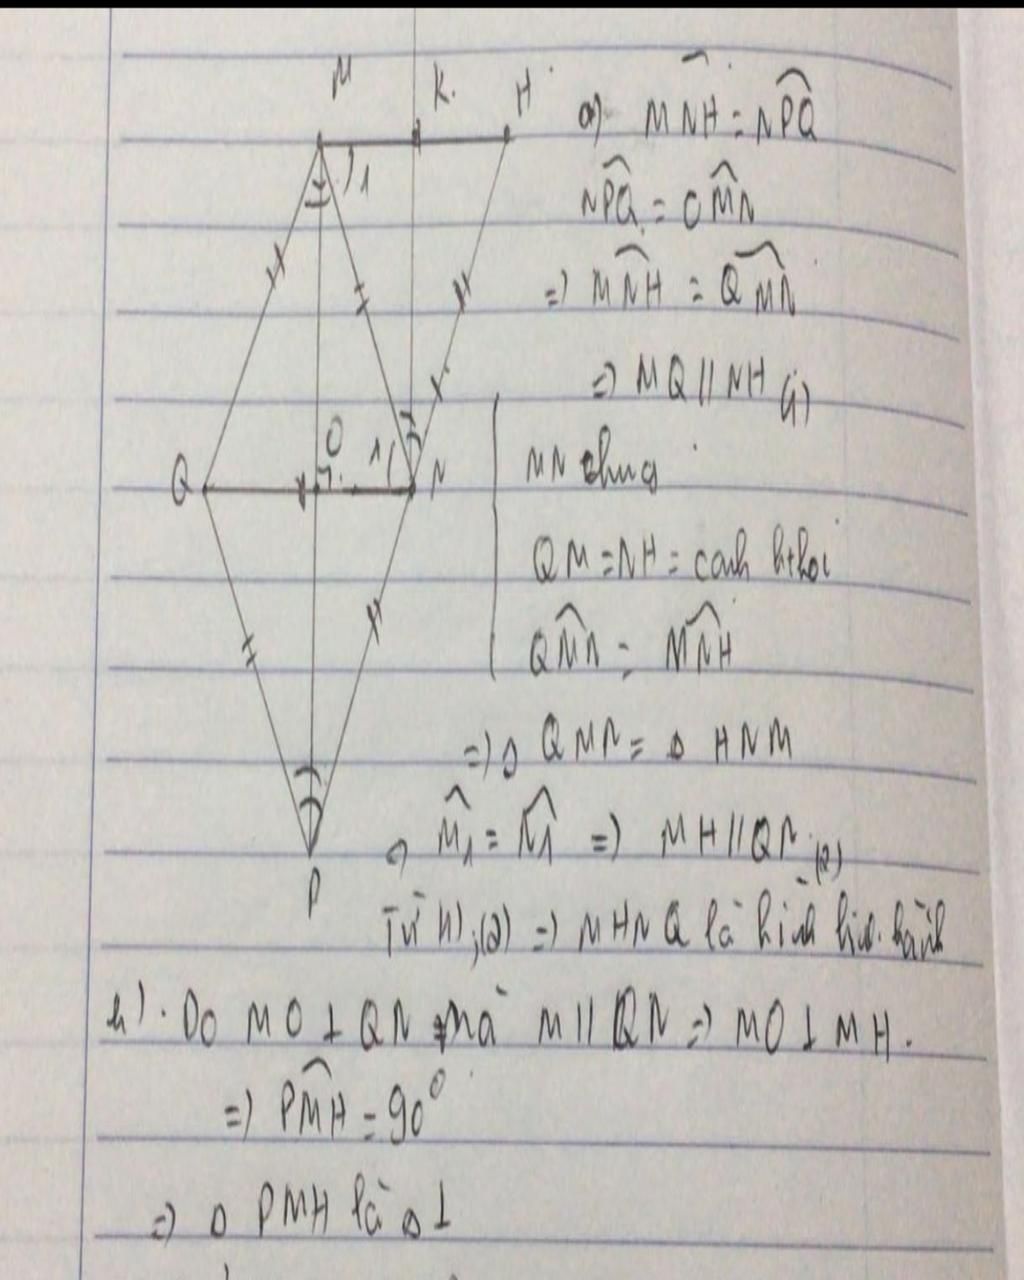 M K. H
a) MNH = NPQ
1
NPQ = QMN
=> MNH = QMN
=> MQ // NH (1)
Q O 1 N
MN chung
QM = NH = cạnh hthoi
QMN = MNH
=> Δ QMN = Δ HNM
=> M1 = N1 => MH // QN (2)
P
Từ (1), (2) => MHNQ là hình bình hành
b). Do MO ⊥ QN mà M // QN => MO ⊥ MH.
=> PMH = 90°
=> Δ PMH là Δ ⊥